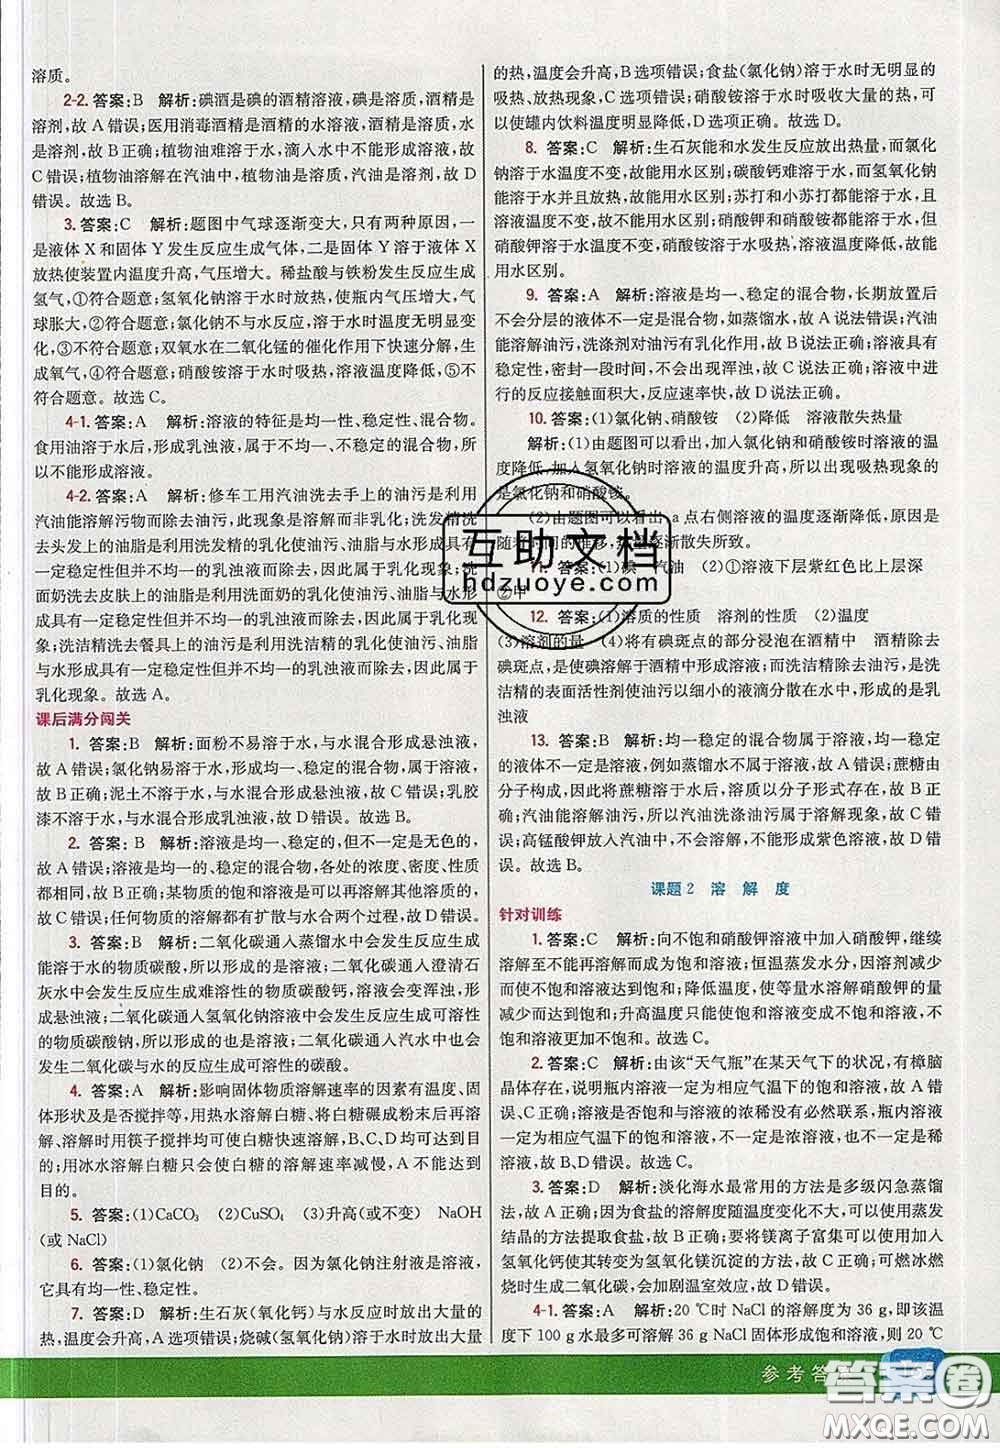 溶质。
2-2. 答案:B 解析:碘酒是碘的酒精溶液,碘是溶质,酒精是
溶剂,故 A 错误;医用消毒酒精是酒精的水溶液,酒精是溶质,水
是溶剂,故 B 正确;植物油难溶于水,滴入水中不能形成溶液,故
C 错误;植物油溶在汽油中,植物油是溶质,汽油是溶剂,故 D
错误。故选 B。
3. 答案:C 解析:题图中气球逐渐变大,只有两种原因,一
是液体 X 和固体 Y 发生反应生成气体,二是固体 Y 溶于液体 X
放热使装置内温度升高,气压增大。稀盐酸与铁粉发生反应生成
氢气,①符合题意;氢氧化钠溶于水时放热,使瓶内气压增大,气
球胀大,②符合题意;氯化钠不与水反应,溶于水时温度无明显变
化,③不符合题意;双氧水在二氧化锰的催化作用下快速分解,生
成氧气,④符合题意;硝酸铵溶于水时吸热,气球会变瘪,⑤不
符合题意。故选 C。
4-1. 答案:A 解析:溶液的特征是均一性、稳定性、混合物。
食用油溶于水后,形成乳浊液,属于不均一、不稳定的混合物,所
以不能形成溶液。
4-2. 答案:A 解析:修车工用汽油洗去手上的油污是利用
汽油能溶解污物而除去油污,此现象是溶解而非乳化;洗发精洗
去头发上的油脂是利用洗发精的乳化使油污、油脂与水形成具有
一定稳定性但并不均一的乳浊液而除去,因此属于乳化现象;洗
面奶洗去皮肤上的油污是利用洗面奶的乳化使油污、油脂与水形
成具有一定稳定性但并不均一的乳浊液而除去,因此属于乳化现
象;洗洁精洗去餐具上的油污是利用洗洁精的乳化使油污、油脂
与水形成具有一定稳定性但并不均一的乳浊液而除去,因此属于
乳化现象。故选 A。
课后满分闯关
1. 答案:B 解析:面粉不易溶于水,与水混合形成悬浊液,
故 A 错误;氯化钠易溶于水,形成均一、稳定的混合物,属于溶液,
故 B 正确;泥土不溶于水,与水混合形成悬浊液,故 C 错误;乳胶
漆不溶于水,与水混合形成乳浊液,故 D 错误。故选 B。
2. 答案:B 解析:溶液是均一、稳定的,但不一定是无色的,
故 A 错误;溶液是均一的、稳定的混合物,各处的浓度、密度、性质
都相同,故 B 正确;某物质的饱和溶液还可以溶解其他溶质,
故 C 错误;任何物质的溶解都有扩散与水合两个过程,故 D 错误。
3. 答案:B 解析:二氧化碳通入蒸馏水中会发生反应生成
能溶于水的物质碳酸,所以形成的是溶液;二氧化碳通入澄清石
灰水中会发生反应生成难溶性的物质碳酸钙,溶液会变浑浊,形
成悬浊液;二氧化碳通入氢氧化钠溶液中会发生反应生成可溶性
的物质碳酸钠,所以形成的是溶液;二氧化碳通入汽水中也会
发生二氧化碳与水的反应生成可溶性的碳酸。
4. 答案:A 解析:影响固体物质溶解速率的因素有温度、固
体形状及是否搅拌等,用热水溶解白糖、将白糖碾成粉末后再溶
解、溶解时用筷子搅拌均可使白糖快速溶解,B、C、D 均可达到目
的;用冰水溶解白糖只会使白糖的溶解速率减慢,A 不能达到
目的。
5. 答案:(1)CaCO₃ (2)CuSO₄ (3)升高(或不变) NaOH
(或 NaCl)
6. 答案:(1)氯化钠 (2)不会。因为氯化钠注射液是溶液,
它具有均一性、稳定性。
7. 答案:D 解析:生石灰(氧化钙)与水反应时放出大量的
热,温度会升高,A 选项错误;烧碱(氢氧化钠)溶于水时放出大量
的热,温度会升高,B 选项错误;食盐(氯化钠)溶于水时无明显的
吸热、放热现象,C 选项错误;硝酸铵溶于水时吸收大量的热,可
以使罐内饮料温度明显降低,D 选项正确。故选 D。
8. 答案:C 解析:生石灰能和水发生反应放出热量,而氯化
钠溶于水时,温度不变,故能用水区别;碳酸钙难溶于水,而氢氧化钠
能溶于水并且放热,故能用水区别;苏打和小苏打都溶于水且
溶液温度不变,故不能用水区别;硝酸钾和硝酸铵都能溶于水,但
硝酸钾溶于水温度不变,硝酸铵溶于水吸热,溶液温度降低,故能
用水区别。
9. 答案:A 解析:溶液是均一、稳定的混合物,长期放置后
不会分层的液体不一定是混合物,如蒸馏水,故 A 说法错误;汽油
能溶解油污,洗涤剂对油污有乳化作用,故 B 说法正确;溶液具有
稳定性,密封一段时间,不会出现浑浊,故 C 说法正确;在溶液中进
行的反应接触面积大,反应速率快,故 D 说法正确。
10. 答案:(1)氯化钠、硝酸铵 (2)降低 溶液散失热量
解析:(1)由题图可以看出,加入氯化钠和硝酸铵时溶液的温
度降低,加入氢氧化钠时溶液的温度升高,所以出现吸热现象的
是氯化钠和硝酸铵。
(2)由题图可以看出 a 点右侧溶液的温度逐渐降低,原因是
随着时间的推移,热量逐渐散失所致。
11. 答案:(1)碘 汽油 (2)①溶液下层紫红色比上层深
②甲
12. 答案:(1)溶质的性质 溶剂的性质 (2)温度
(3)溶剂的量 (4)将有碘斑点的部分浸泡在酒精中 酒精除去
碘斑点,是使碘溶解于酒精中形成溶液;而洗洁精除去油污,是洗
洁精的表面活性剂使油污以细小的液滴分散在水中,形成的是乳
浊液
13. 答案:B 解析:均一稳定的混合物属于溶液,均一稳定
的液体不一定是溶液,例如蒸馏水不属于溶液,故 A 错误;蔗糖由
分子构成,因此将蔗糖溶于水后,溶质以分子形式存在,故 B 正
确;汽油能溶解油污,所以用汽油洗涤油污属于溶解现象,故 C 错
误;高锰酸钾放入汽油中,不会溶解,不能形成紫色溶液,故 D 错
误。故选 B。
课题 2 溶 解 度
针对训练
1. 答案:C 解析:向不饱和硝酸钾溶液中加入硝酸钾,继续
溶解至不能再溶解的时候成为饱和溶液;恒温蒸发水分,因溶剂减少
而使溶液达到饱和状态;降低温度,使等量水溶解硝酸钾的量
减少而达到饱和;升高温度只能使饱和溶液变成不饱和溶液,不
饱和溶液更加不饱和。故选 C。
2. 答案:C 解析:由该“天气瓶”在某天气下的状况,有樟脑
晶体存在,说明瓶内溶液一定为相应气温下的饱和溶液,故 A 错
误,C 正确;溶液是否饱和与溶液的浓稀没有必然联系,瓶内溶液
一定为相应气温下的饱和溶液,不一定是浓溶液,也不一定是稀
溶液,故 B、D 错误。故选 C。
3. 答案:D 解析:淡化海水最常用的方法是多级闪急蒸馏
法,故 A 正确;因为食盐的溶解度随温度变化不大,可以使用蒸发
结晶的方法提取食盐,故 B 正确;要将镁离子富集可以使用加入
氢氧化钙使其转变为氢氧化镁沉淀的方法,故 C 正确;可燃冰燃
烧时生成二氧化碳,会加剧温室效应,故 D 错误。
4-1. 答案:A 解析:20 ℃时 NaCl 的溶解度为 36 g,即该温
度下 100 g 水最多可溶解 36 g NaCl 固体形成饱和溶液,则 20 ℃
互助文档
hdzuoye.com
参考答
答案圈
MXQE.COM